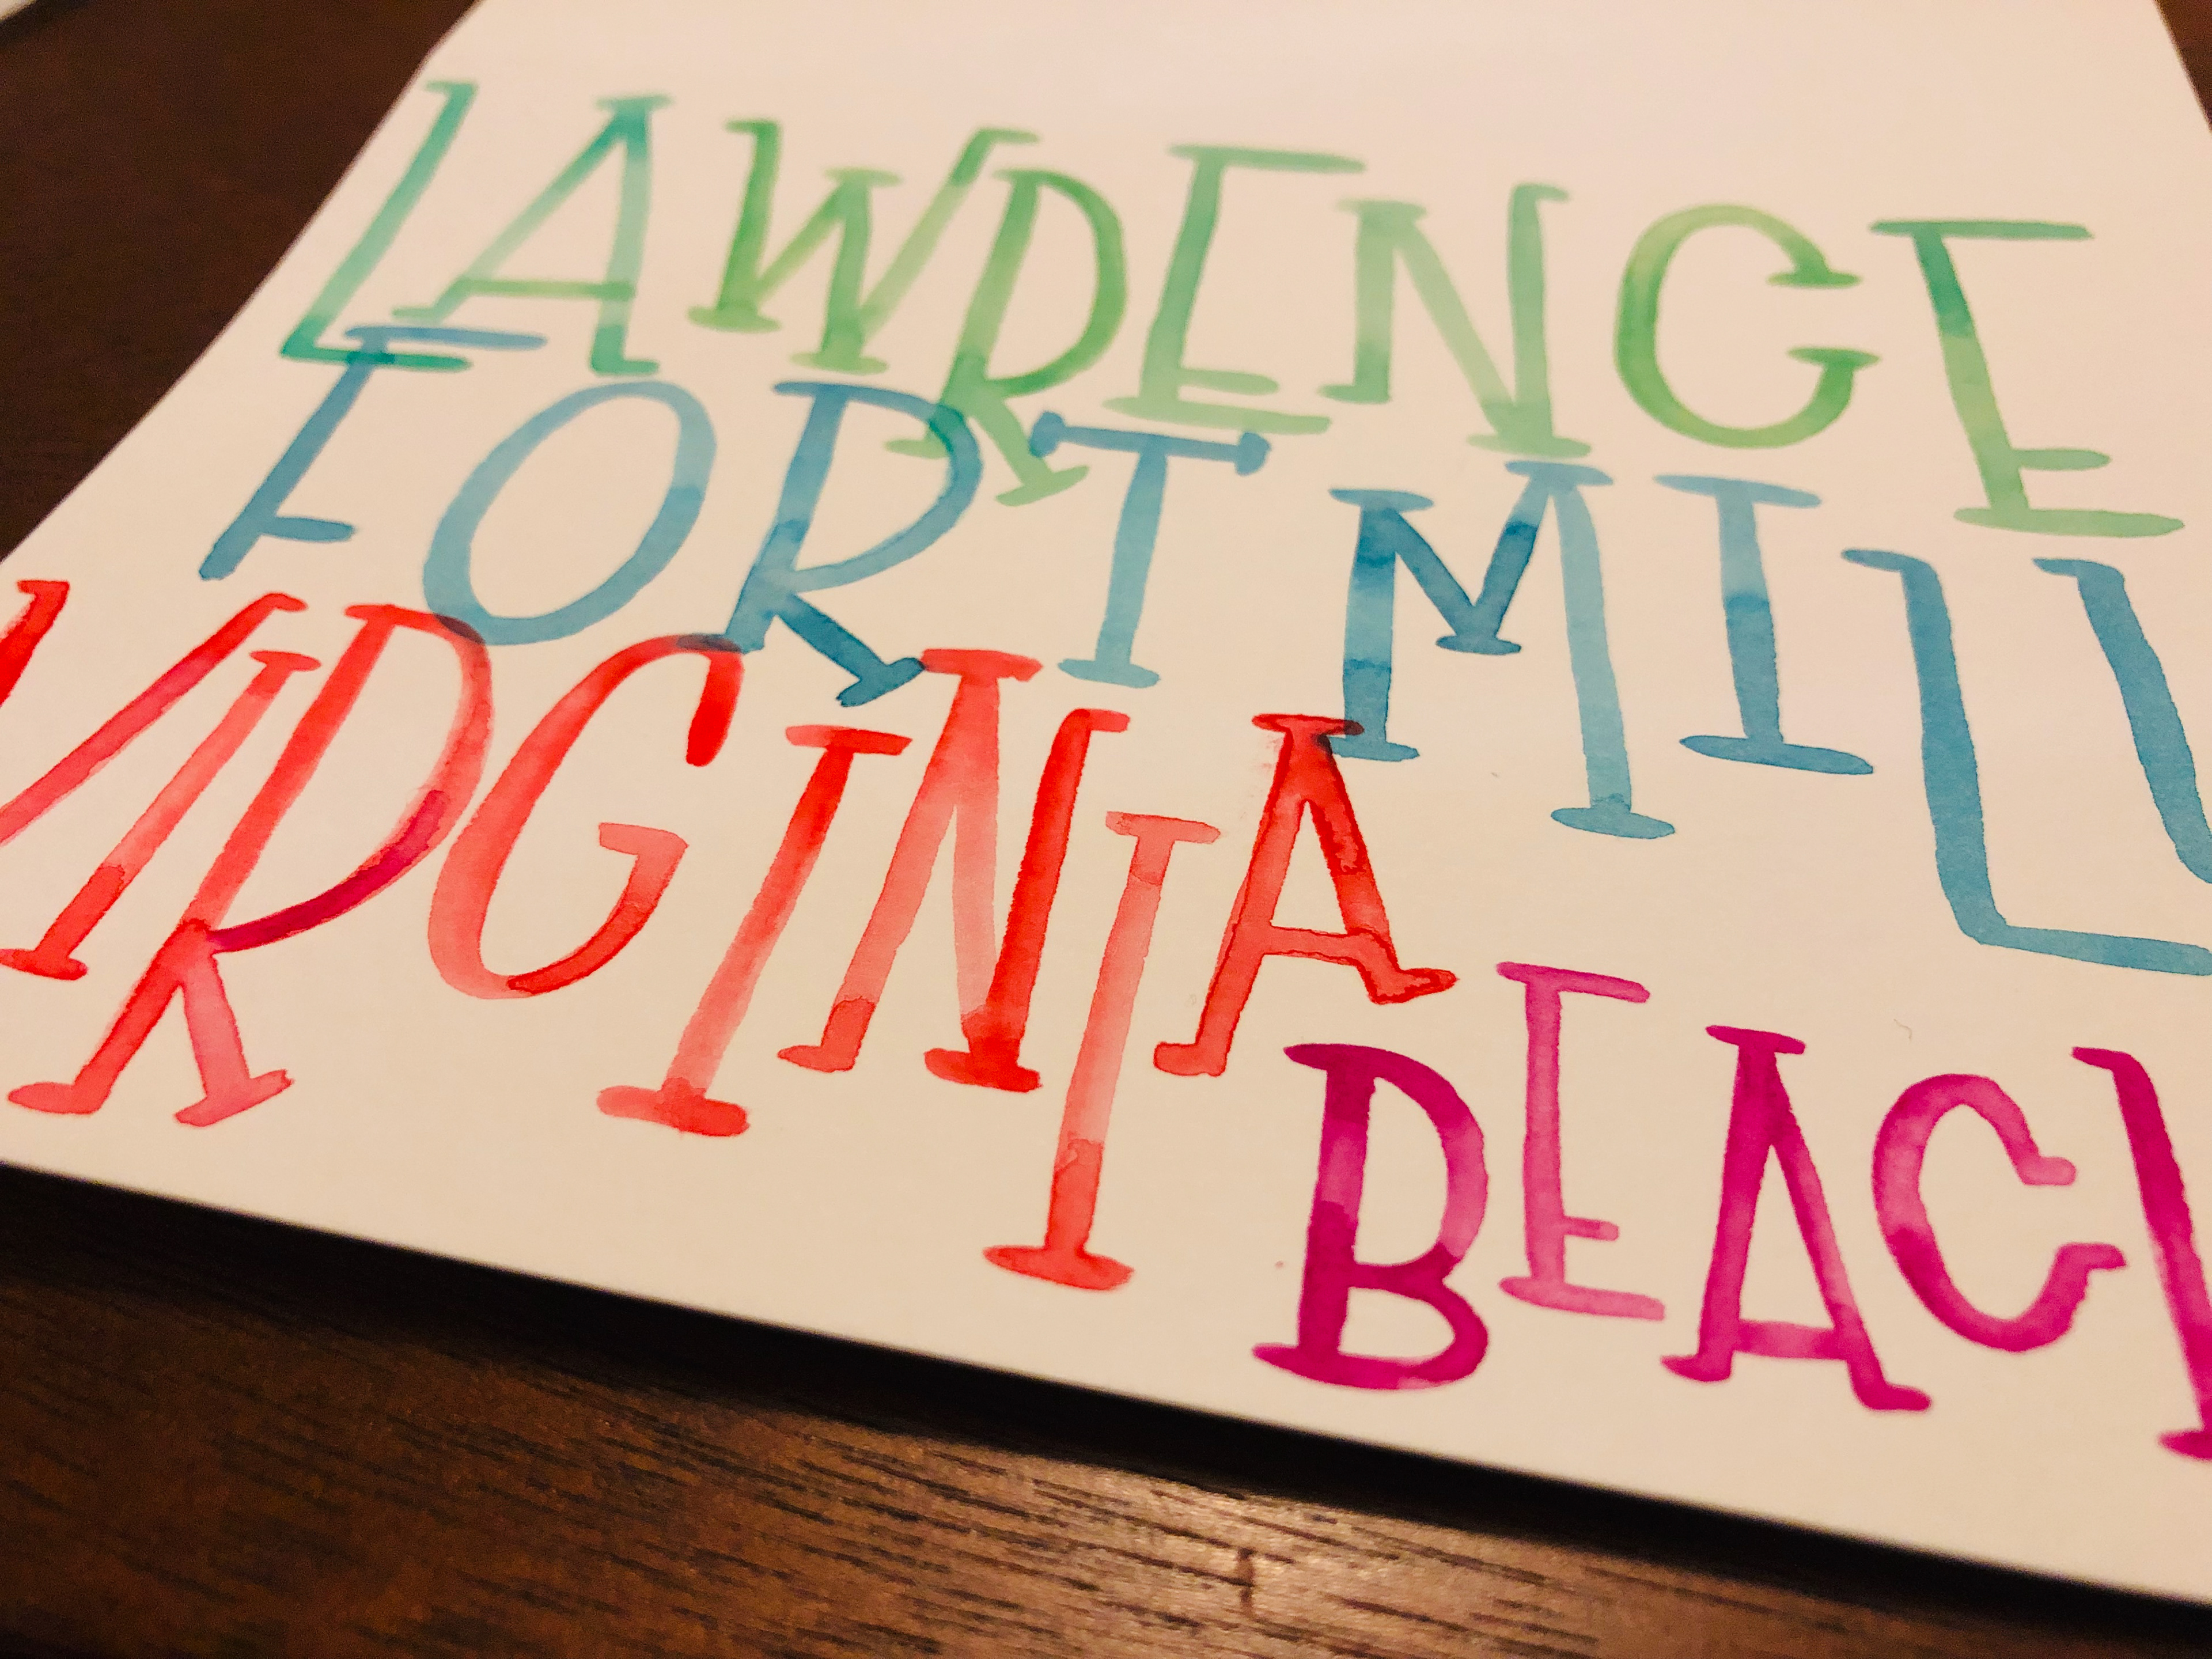 LAWRENCE
FORT MILL
VIRGINIA
BEACH